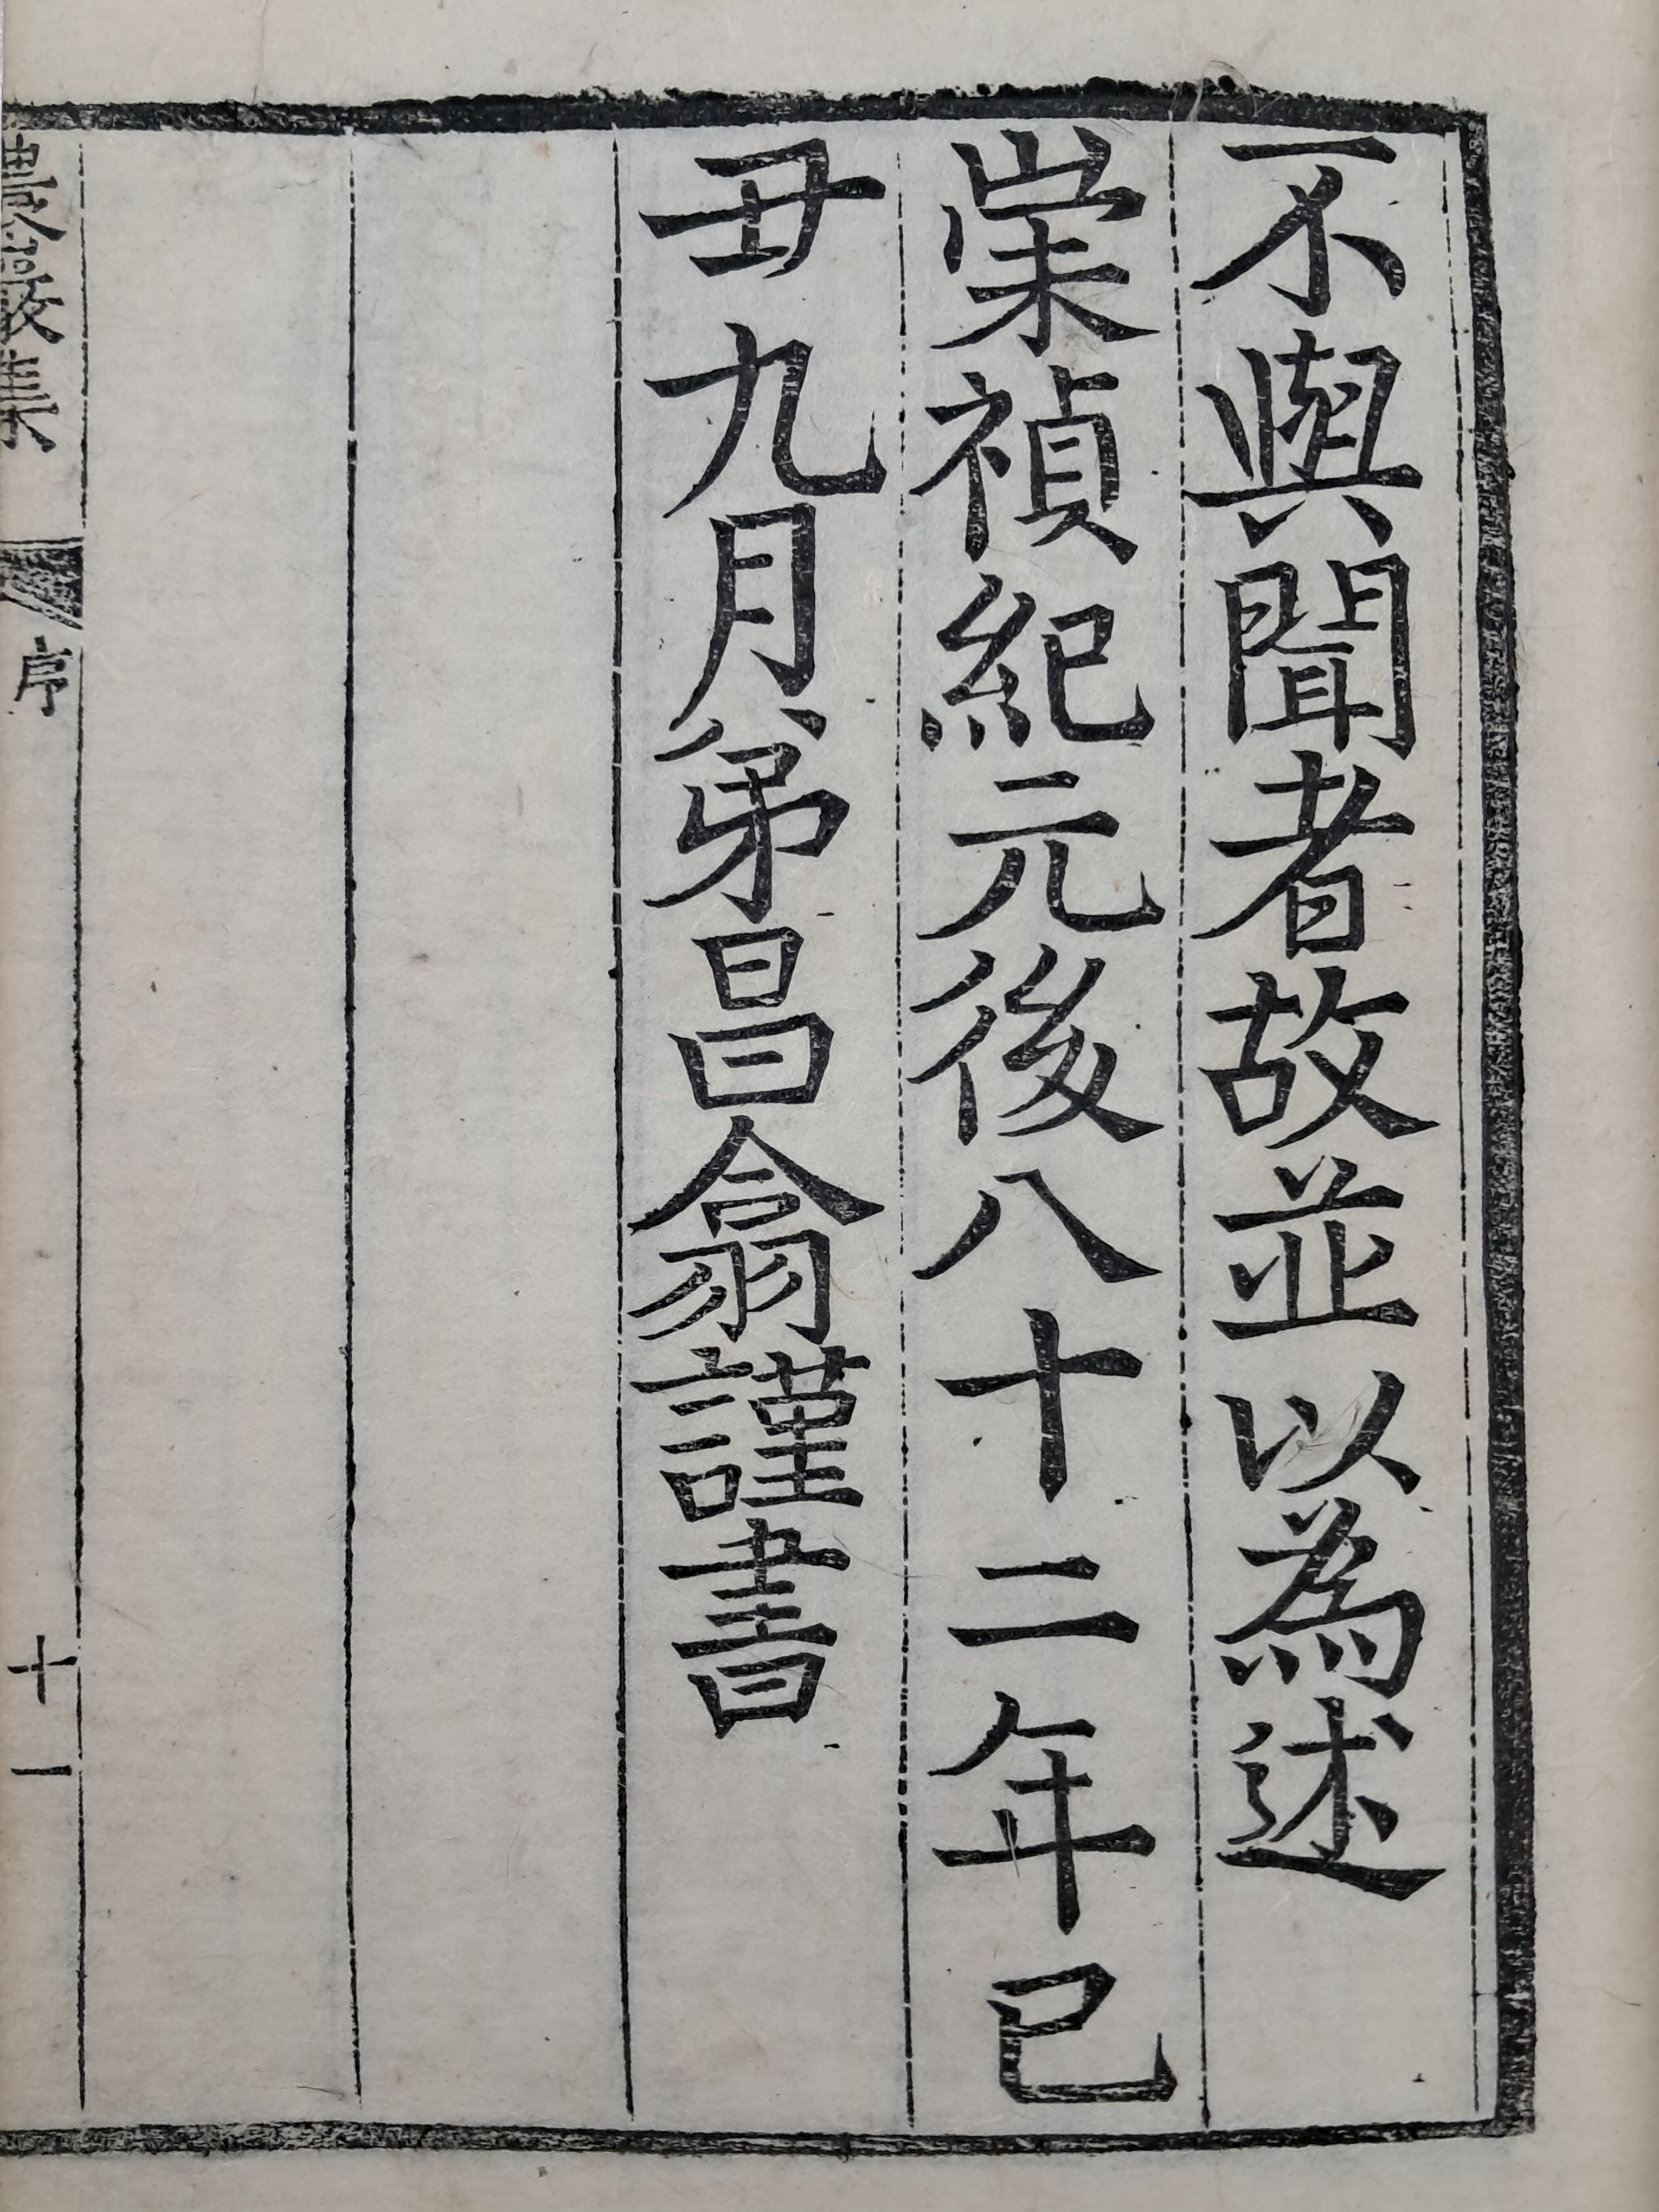 不與聞者故並以為述
崇禎紀元後八十二年己
丑九月弟昌翕謹書
農巖集
序
十一